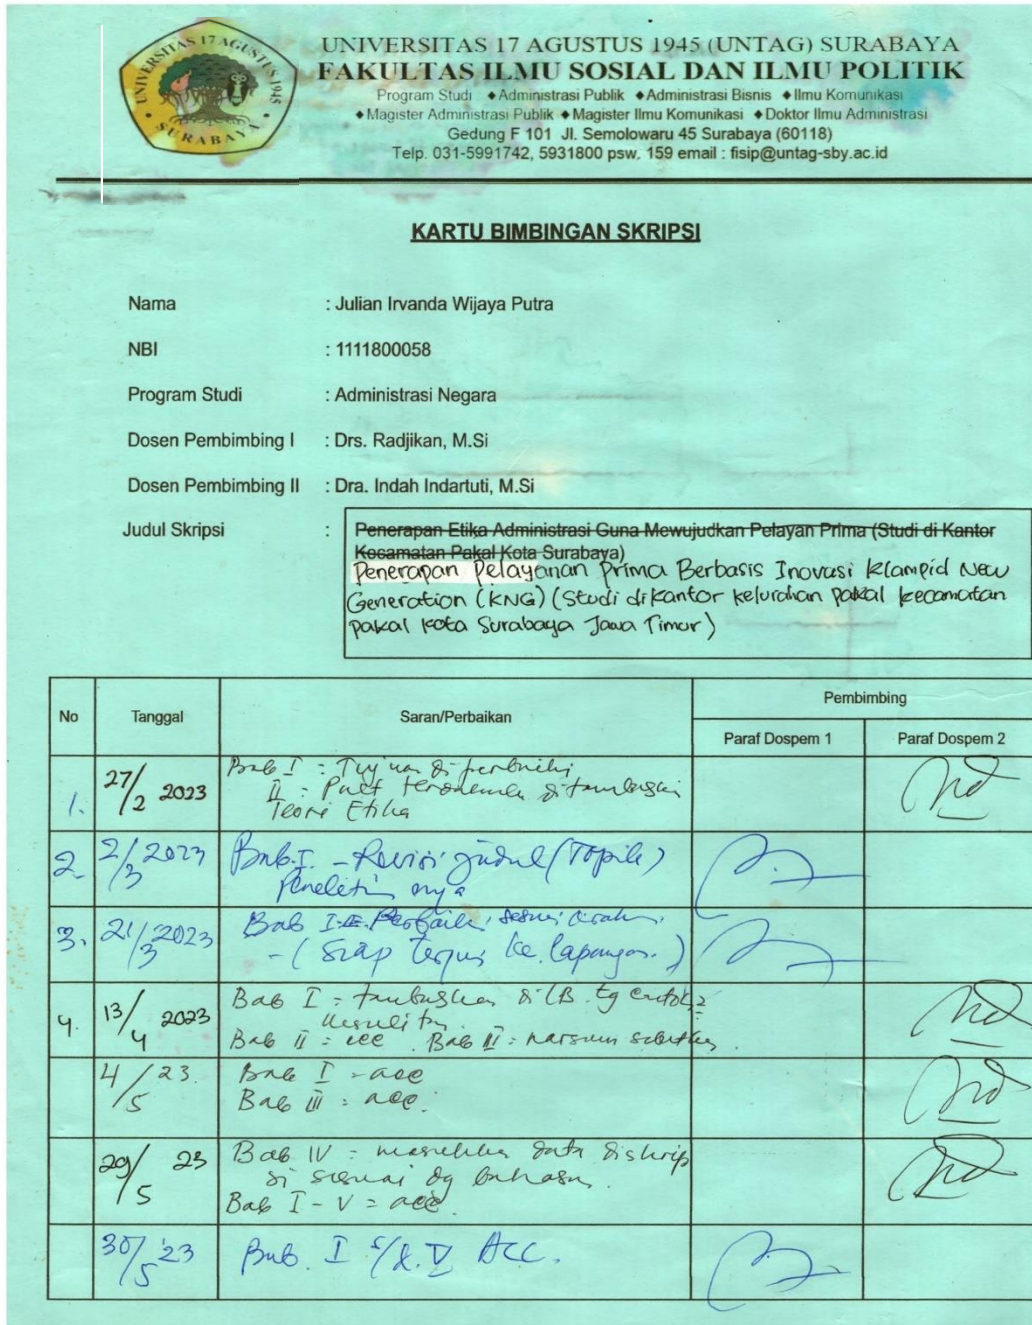 UNIVERSITAS 17 AGUSTUS 1945
SURABAYA
UNIVERSITAS 17 AGUSTUS 1945 (UNTAG) SURABAYA
FAKULTAS ILMU SOSIAL DAN ILMU POLITIK
Program Studi ◆Administrasi Publik ◆Administrasi Bisnis ◆Ilmu Komunikasi
◆Magister Administrasi Publik ◆Magister Ilmu Komunikasi ◆Doktor Ilmu Administrasi
Gedung F 101 Jl. Semolowaru 45 Surabaya (60118)
Telp. 031-5991742, 5931800 psw. 159 email : fisip@untag-sby.ac.id
KARTU BIMBINGAN SKRIPSI
Nama : Julian Irvanda Wijaya Putra
NBI : 1111800058
Program Studi : Administrasi Negara
Dosen Pembimbing I : Drs. Radjikan, M.Si
Dosen Pembimbing II : Dra. Indah Indartuti, M.Si
Judul Skripsi : Penerapan Etika Administrasi Guna Mewujudkan Pelayan Prima (Studi di Kantor
Kecamatan Pakal Kota Surabaya)
Penerapan Pelayanan Prima Berbasis Inovasi Klampid New
Generation (KNG) (Studi di kantor kelurahan pakal kecamatan
pakal kota Surabaya Jawa Timur)
No Tanggal Saran/Perbaikan Pembimbing
Paraf Dospem 1 Paraf Dospem 2
1. 27/2 2023 Bab I = Tujuan diperbaiki
II = ditambahkan
Teori Etika
2. 2/3 2023 Bab.I - Revisi judul (Topik)
Penelitian nya
3. 21/3 2023 Bab I sesuai arahan.
- (Siap terjun ke lapangan.)
4. 13/4 2023 Bab I = tambahkan di LB
Bab II = acc Bab III =
4/5 23. Bab I - acc
Bab III = acc.
29/5 23 Bab IV = masukkan data diskrip
si sesuai dg bahasan.
Bab I - V = acc.
30/5 '23 Bab. I s/d. V ACC.